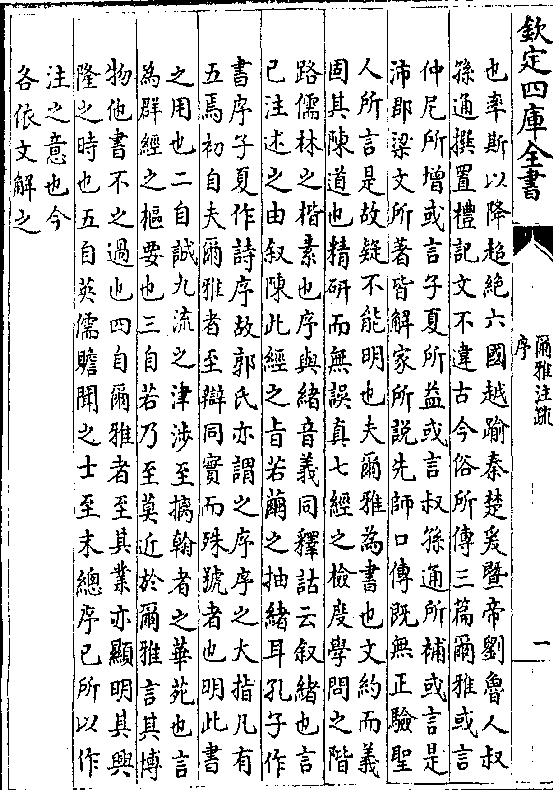 欽定四庫全書
爾雅注疏
序
一
也率斯以降超絕六國越踰秦楚爰暨帝劉魯人叔
孫通撰置禮記文不違古今俗所傳三篇爾雅或言
仲尼所增或言子夏所益或言叔孫通所補或言是
沛郡梁文所著皆解家所說先師口傳既無正驗聖
人所言是故疑不能明也夫爾雅為書也文約而義
固其陳道也精研而無誤真七經之檢度學問之階
路儒林之楷素也序與緒音義同釋詁云叙緒也言
已注述之由叙陳此經之旨若繭之抽緒耳孔子作
書序子夏作詩序故郭氏亦謂之序序之大指凡有
五焉初自夫爾雅者至辯同實而殊號者也明此書
之用也二自誠九流之津涉至摛翰者之華苑也言
為群經之樞要也三自若乃至莫近於爾雅言其博
物他書不之過也四自爾雅者至其業亦顯明其興
隆之時也五自英儒贍聞之士至末總序已所以作
注之意也今
各依文解之